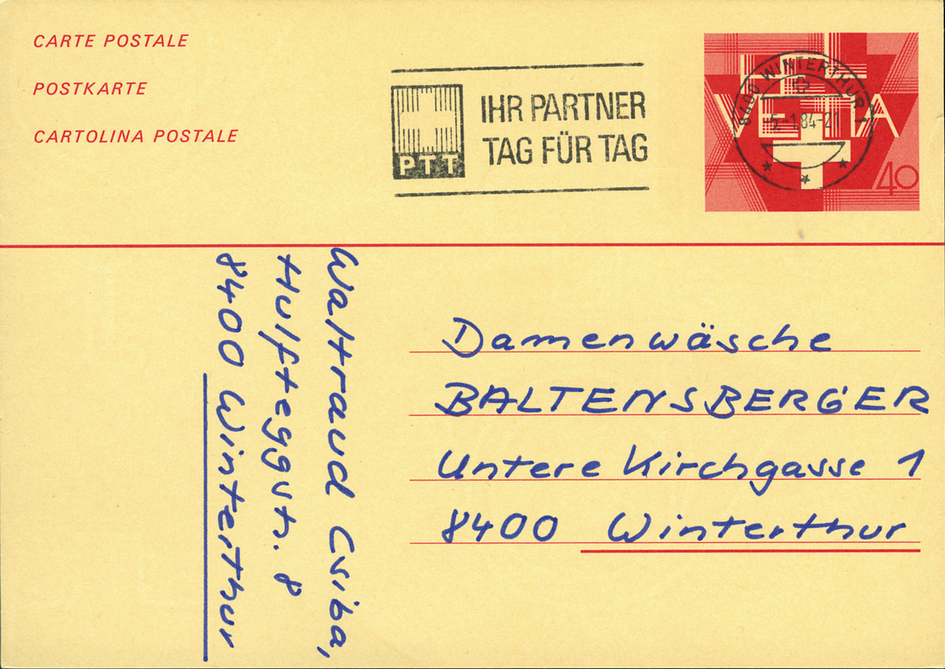 CARTE POSTALE
POSTKARTE
CARTOLINA POSTALE
PTT
IHR PARTNER
TAG FÜR TAG
8400 WINTERTHUR 1
5.-1.84-21
HELVETIA
40
Waltraud Csiba,
Hulfteggstr. 8
8400 Winterthur
Damenwäsche
BALTENSBERGER
Untere Kirchgasse 1
8400 Winterthur